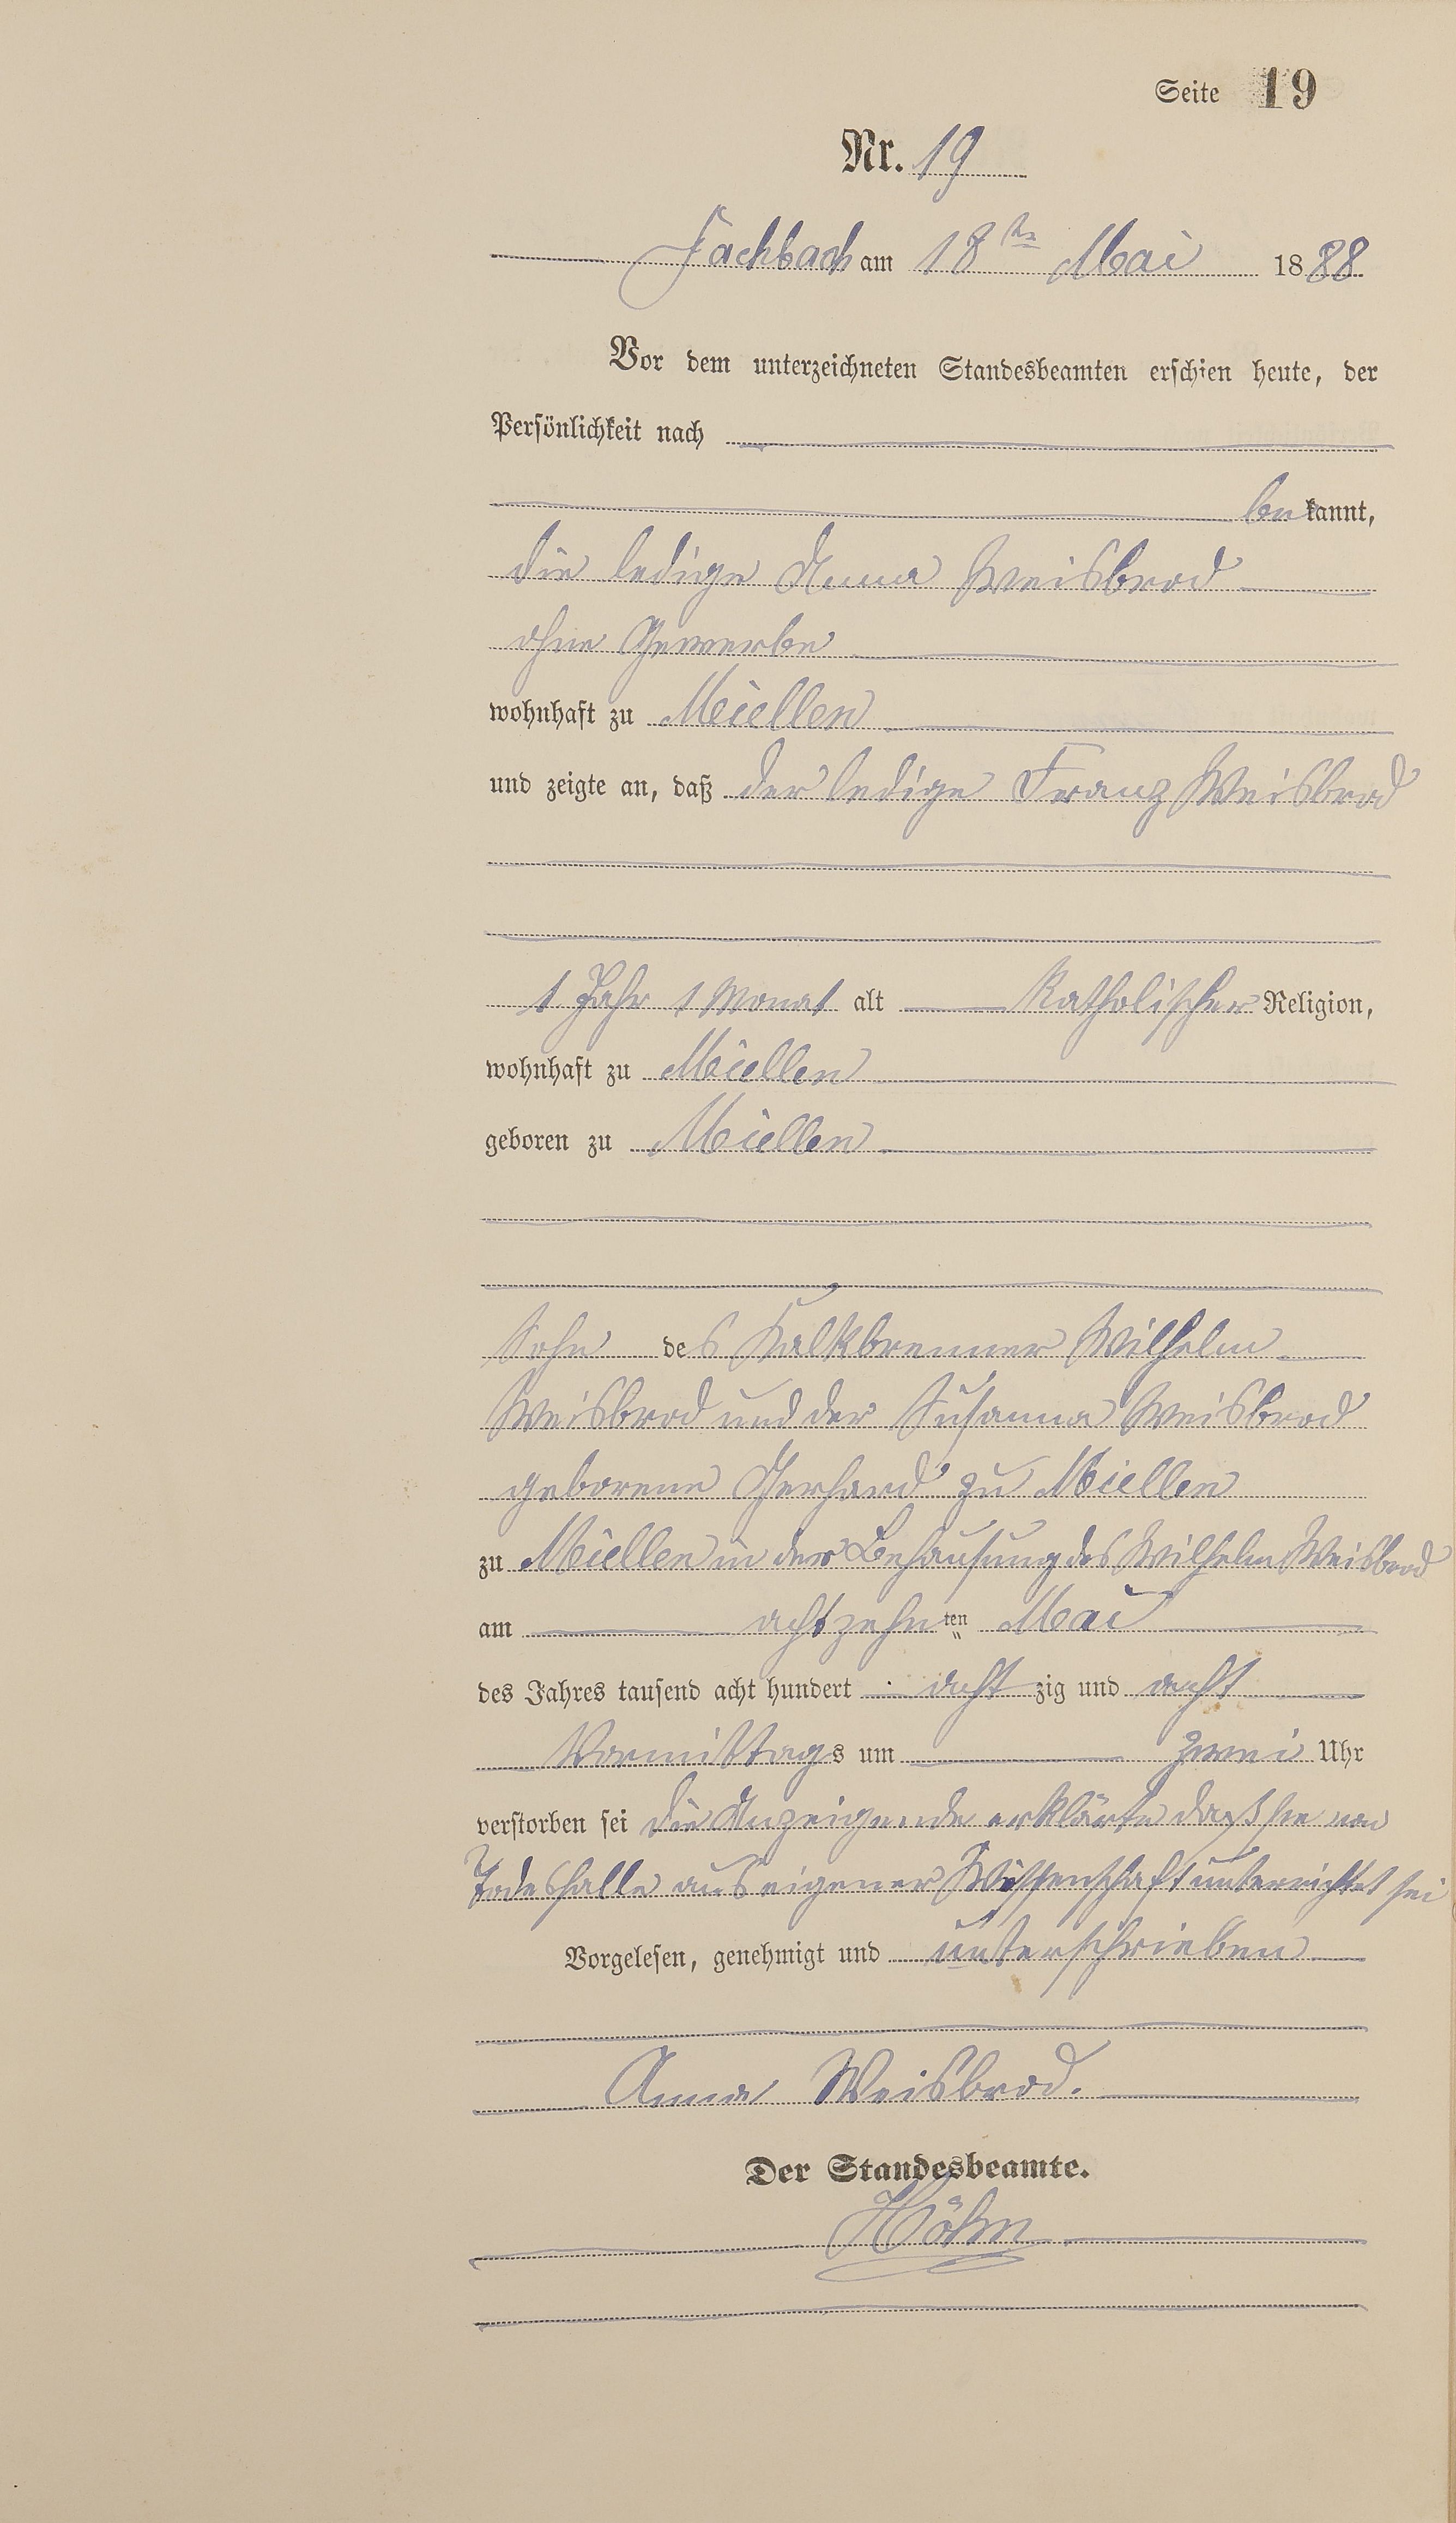 Seite 19
Nr. 19
Fachbach am 18ten Mai 1888
Vor dem unterzeichneten Standesbeamten erschien heute, der
Persönlichkeit nach
bekannt,
die ledige Anna Weisbrod
ohne Gewerbe
wohnhaft zu Miellen
und zeigte an, daß der ledige Franz Weisbrod
1 Jahr 1 Monat alt katholischer Religion,
wohnhaft zu Miellen
geboren zu Miellen
Sohn des Kalkbrenner Wilhelm
Weisbrod und der Susanna Weisbrod
geborene Gerhard zu Miellen
zu Miellen in der Behausung des Wilhelm Weisbrod
am achtzehnten Mai
des Jahres tausend acht hundert achtzig und acht
Vormittags um zwei Uhr
verstorben sei die Anzeigende erklärte daß sie von
Todesfalle aus eigener Wissenschaft unterrichtet sei
Vorgelesen, genehmigt und unterschrieben
Anna Weisbrod.
Der Standesbeamte.
Höhn